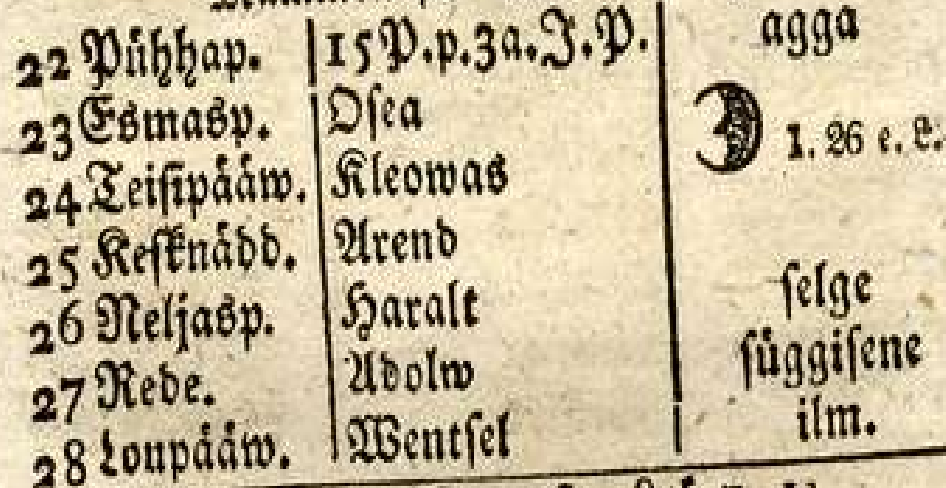 22 Pühhap. 15 P. p. 3a. J. P. agga
23 Esmasp. Osea
1. 26 e. L.
24 Teisipääw. Kleowas
25 Keſknädd. Arend
26 Neljasp. Haralt ſelge
27 Rede. Adolw ſüggiſene
28 Loupääw. Wentſel ilm.